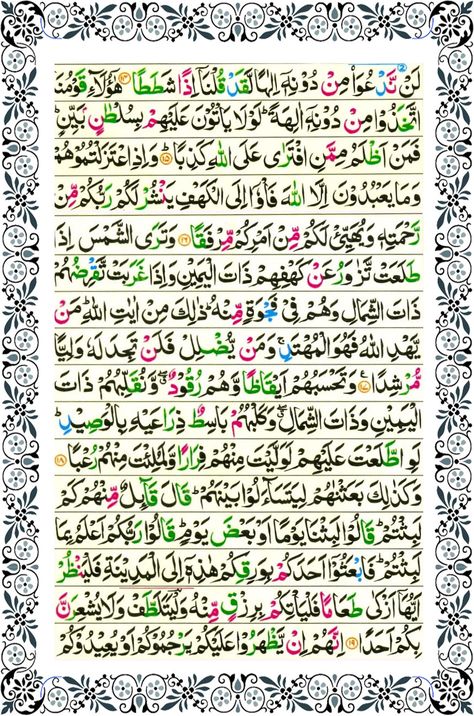 لَنْ نَّدْعُوَا۟ مِنْ دُوْنِهٖۤ اِلٰهًا لَّقَدْ قُلْنَاۤ اِذًا شَطَطًا ﴿۱۴﴾ هٰۤؤُلَآءِ قَوْمُنَا
اتَّخَذُوْا مِنْ دُوْنِهٖۤ اٰلِهَةً ؕ لَوْ لَا یَاْتُوْنَ عَلَیْهِمْ بِسُلْطٰنٍۭ بَیِّنٍ ؕ
فَمَنْ اَظْلَمُ مِمَّنِ افْتَرٰی عَلَی اللّٰهِ كَذِبًا ﴿۱۵﴾ وَ اِذِ اعْتَزَلْتُمُوْهُمْ
وَ مَا یَعْبُدُوْنَ اِلَّا اللّٰهَ فَاْوٗۤا اِلَی الْكَهْفِ یَنْشُرْ لَكُمْ رَبُّكُمْ مِّنْ
رَّحْمَتِهٖ وَ یُهَیِّئْ لَكُمْ مِّنْ اَمْرِكُمْ مِّرْفَقًا ﴿۱۶﴾ وَ تَرَی الشَّمْسَ اِذَا
طَلَعَتْ تَّزٰوَرُ عَنْ كَهْفِهِمْ ذَاتَ الْیَمِیْنِ وَ اِذَا غَرَبَتْ تَّقْرِضُهُمْ
ذَاتَ الشِّمَالِ وَ هُمْ فِیْ فَجْوَةٍ مِّنْهُ ؕ ذٰلِكَ مِنْ اٰیٰتِ اللّٰهِ ؕ مَنْ
یَّهْدِ اللّٰهُ فَهُوَ الْمُهْتَدِ ۚ وَ مَنْ یُّضْلِلْ فَلَنْ تَجِدَ لَهٗ وَلِیًّا
مُّرْشِدًا ﴿۱۷﴾ وَ تَحْسَبُهُمْ اَیْقَاظًا وَّ هُمْ رُقُوْدٌ ۖۗ وَّ نُقَلِّبُهُمْ ذَاتَ
الْیَمِیْنِ وَ ذَاتَ الشِّمَالِ ۖۗ وَ كَلْبُهُمْ بَاسِطٌ ذِرَاعَیْهِ بِالْوَصِیْدِ ؕ
لَوِ اطَّلَعْتَ عَلَیْهِمْ لَوَلَّیْتَ مِنْهُمْ فِرَارًا وَّ لَمُلِئْتَ مِنْهُمْ رُعْبًا ﴿۱۸﴾
وَ كَذٰلِكَ بَعَثْنٰهُمْ لِیَتَسَآءَلُوْا بَیْنَهُمْ ؕ قَالَ قَآىِٕلٌ مِّنْهُمْ كَمْ
لَبِثْتُمْ ؕ قَالُوْا لَبِثْنَا یَوْمًا اَوْ بَعْضَ یَوْمٍ ؕ قَالُوْا رَبُّكُمْ اَعْلَمُ بِمَا
لَبِثْتُمْ ؕ فَابْعَثُوْۤا اَحَدَكُمْ بِوَرِقِكُمْ هٰذِهٖۤ اِلَی الْمَدِیْنَةِ فَلْیَنْظُرْ
اَیُّهَاۤ اَزْكٰی طَعَامًا فَلْیَاْتِكُمْ بِرِزْقٍ مِّنْهُ وَ لْیَتَلَطَّفْ وَ لَا یُشْعِرَنَّ
بِكُمْ اَحَدًا ﴿۱۹﴾ اِنَّهُمْ اِنْ یَّظْهَرُوْا عَلَیْكُمْ یَرْجُمُوْكُمْ اَوْ یُعِیْدُوْكُمْ